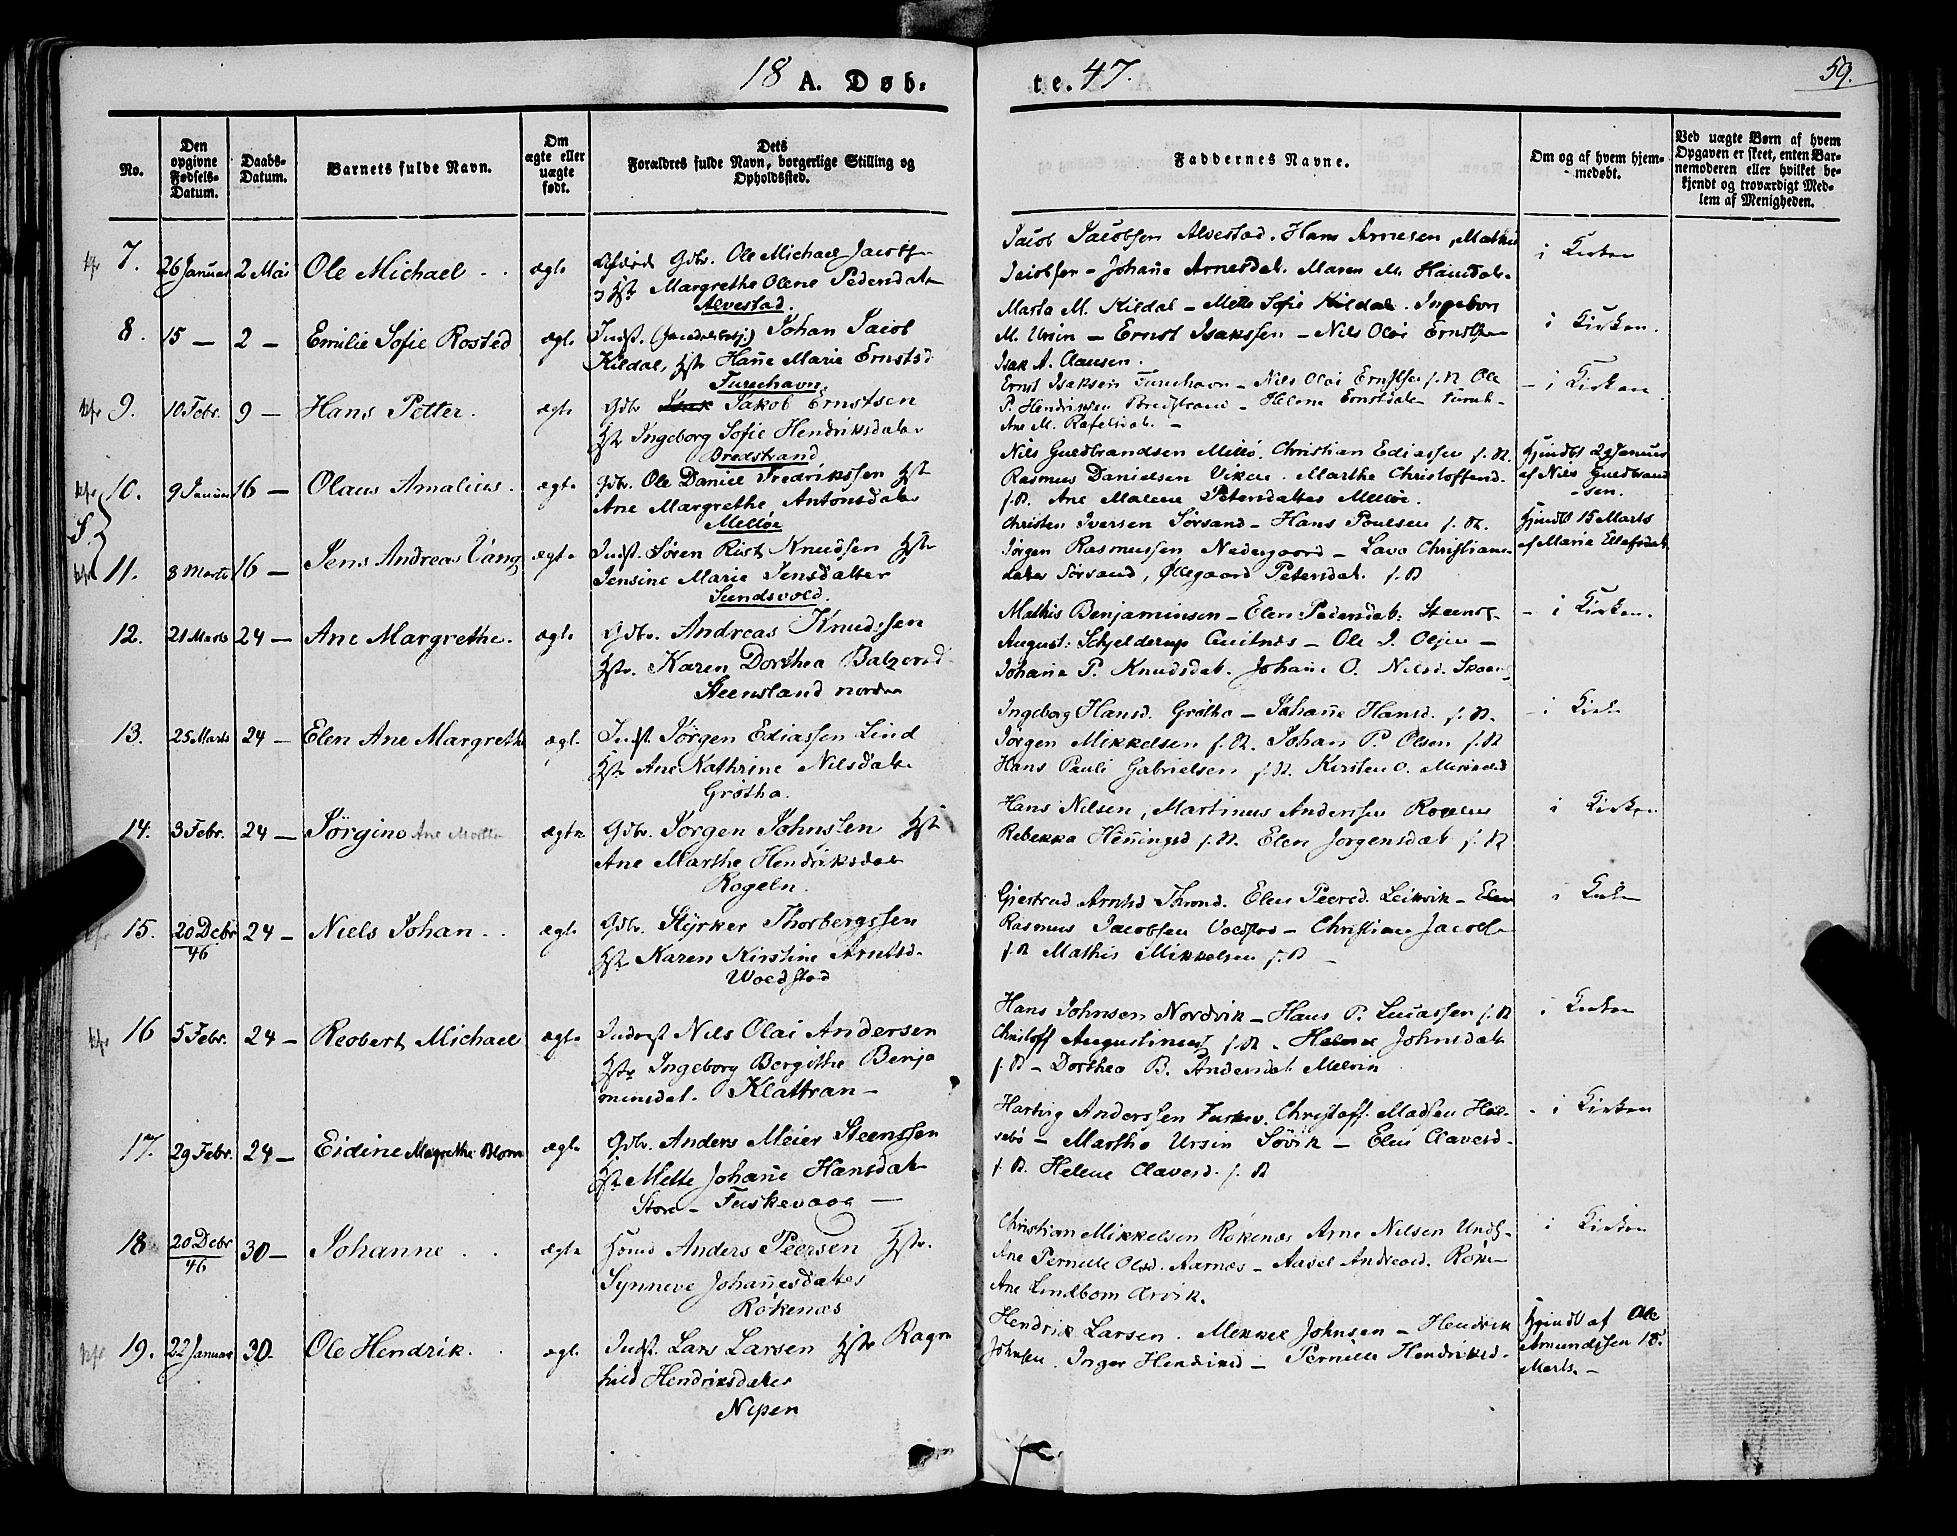 18 A. Døb-
te. 47.
59.
No.
Den opgivne Fødsels-Datum.
Daabs-Datum.
Barnets fulde Navn.
Om ægte eller uægte født.
Dets Forældres fulde Navn, borgerlige Stilling og Opholdssted.
Faddernes Navne.
Om og af hvem hjem-medøbt.
Ved uægte Børn af hvem Opgaven er skeet, enten Bar-nemoderen eller hvilket be-kjendt og troværdigt Med-lem af Menigheden.
7. 26 Januar 2 Mai Ole Michael ægte
Gdbr. Ole Michael Jacobs
Hst Margrethe Olene Pedersdat
Alvestad.
Jacob Jacobsen Alvestad. Hans Arnesen, Mathis
Jacobsen - Johañe Arnesdat. Maren M.
i Kirken
8. 15 — 2 — Emilie Sofie Rosted ægte
Indst. Johan Jacob
Kildal, Hst Hañe Marie Ernstsd
Turøehavn.
Marta M. Kildal - Mette Sofie Kildal. Ingeborg
M. Ursin - Ernst Isakssen - Nils Olai Ernstsen
Isak A. Clausen.
i Kirken.
9. 10 Febr. 9 — Hans Petter. ægte
Gdbr Jakob Ernstsen
Hst Ingeborg Sofie Hendriksdater
Bredstrand
Ernst Isaksen - Nils Olai Ernstsen f. St. Ole
P. Hendriksen Bredstrand - Helene Ernstsdater
Ane M. Rafelsdat. —
- i Kirken
10. 9 Januar 16 — Olaus Amalius. ægte
Gdbr. Ole Daniel Fredrikssen Hst
Ane Margrethe Antonsdater
Melløe
Nils Guldbrandsen Melló. Christian Ediassen f. St.
Rasmus Danielsen Viken. Marthe Christoffersd.
f. St. Ane Malene Petersdatter Melløe.
Hjmdbt 29 Januar
af Nils Guldbrand
-sen.
11. 8 Marts 16 — Jens Andreas Vang ægte
Indst. Søren Rist Knudsen Hst
Jensine Marie Jensdatter
Sundsvold.
Christen Iversen Sørsand - Hans Poulsen f. St.
Jørgen Rasmussen Nedergaard - Lava Christians-
dater Sørsand, Ollegaard Petersdat. f. St
Hjmdbt 15 Marts
af Marie Ellefsdat.
12. 21 Marts 24 — Ane Margrethe. ægte
Gdbr. Andreas Knudssen
Hst. Karen Dorthea Balzersd
Steensland nordre
Mathis Benjaminsen - Elen Pedersdat. Steensl.
August: Schjelderup Qvitnes - Ole J. Olsen -
Johañe P. Knudsdat. Johañe O. Nilsd.
- i Kirken.
13. 25 Marts 24 — Elen Ane Margrethe ægt.
Indst. Jørgen Ediassen Lind
Hst Ane Kathrine Nilsdater
Grøtha.
Ingeborg Hansd. Grøtha - Johañe Hansd. f. St.
Jørgen Mikkelsen f. St. Johan P. Olsen f. St
Hans Pauli Gabrielsen f. St. Kirsten O. Mikkelsd
- i Kirk
14. 3 Febr. 24 — Jørgine Ane Martha ægte
Gdbr. Jørgen Johnsen Hst
Ane Marthe Hendriksdat
Rogeln.
Hans Nilsen, Martinus Anderssen Rogeln
Rebekka Heñingsd f. St. Elen Jørgensdat f. St
i Kirken
15. 20 Debr 46 24 — Niels Johan. ægt.
Gdbr. Styrker Thorbergssen
Hst Karen Kirstine Arntsd.
Woldstad
Elen Peersd. Leikvik - Elen
Rasmus Jacobsen Voldstad - Christian Jacobs
f. St Mathis Mikkelsen f. St —
i Kirken
16 5 Febr. 24 — Reobert Michael ægte
Inderst Nils Olai Andersen
Hst Ingeborg Bergithe Benja
minsdat. Klattran —
Hans Johnsen Nordvik - Hans P. Lucassen f. St
Christoff Augustinus f. St. Helene Johnsdat
f. St - Dorthea B. Andersdat Melvin
i Kirken
17. 29 Febr. 24 — Eidine Magrethe Blom ægt.
Gdbr. Anders Meier Steenssen
Hst. Mette Johañe Hansdat
Store - Fuskevaag —
Hartvig Anderssen Fuskev. Christoff. Madsen Hol-
sebø - Martha Ursin Sövik - Elen Clavesd.
f. St. Helene Clavesd. f. St
- i Kirken
18 20 Debr 46 30 — Johanne. ægte
Huusmd Anders Peersen Hstr.
Synneve Johañesdater
Røkenæs
Christian Mikkelsen Røkenæs Arne Nilsen
Ane Pernille Olsd. Aarnæs - Aasel Andreasd. Røken
Ane Lindbom Ervik.
i Kirken
19. 22 Januar 30. Ole Hendrik. ægt.
Indst. Lars Larsen Hst Ragn
hild Hendriksdater
Nipen
Hendrik Larsen. Mikkel Johnsen - Hendrik
Johnsen. Inger Hendriksd - Pernille Hendriksd.
Hjmdbt af Ole
Amundssen 18.
Marts. —